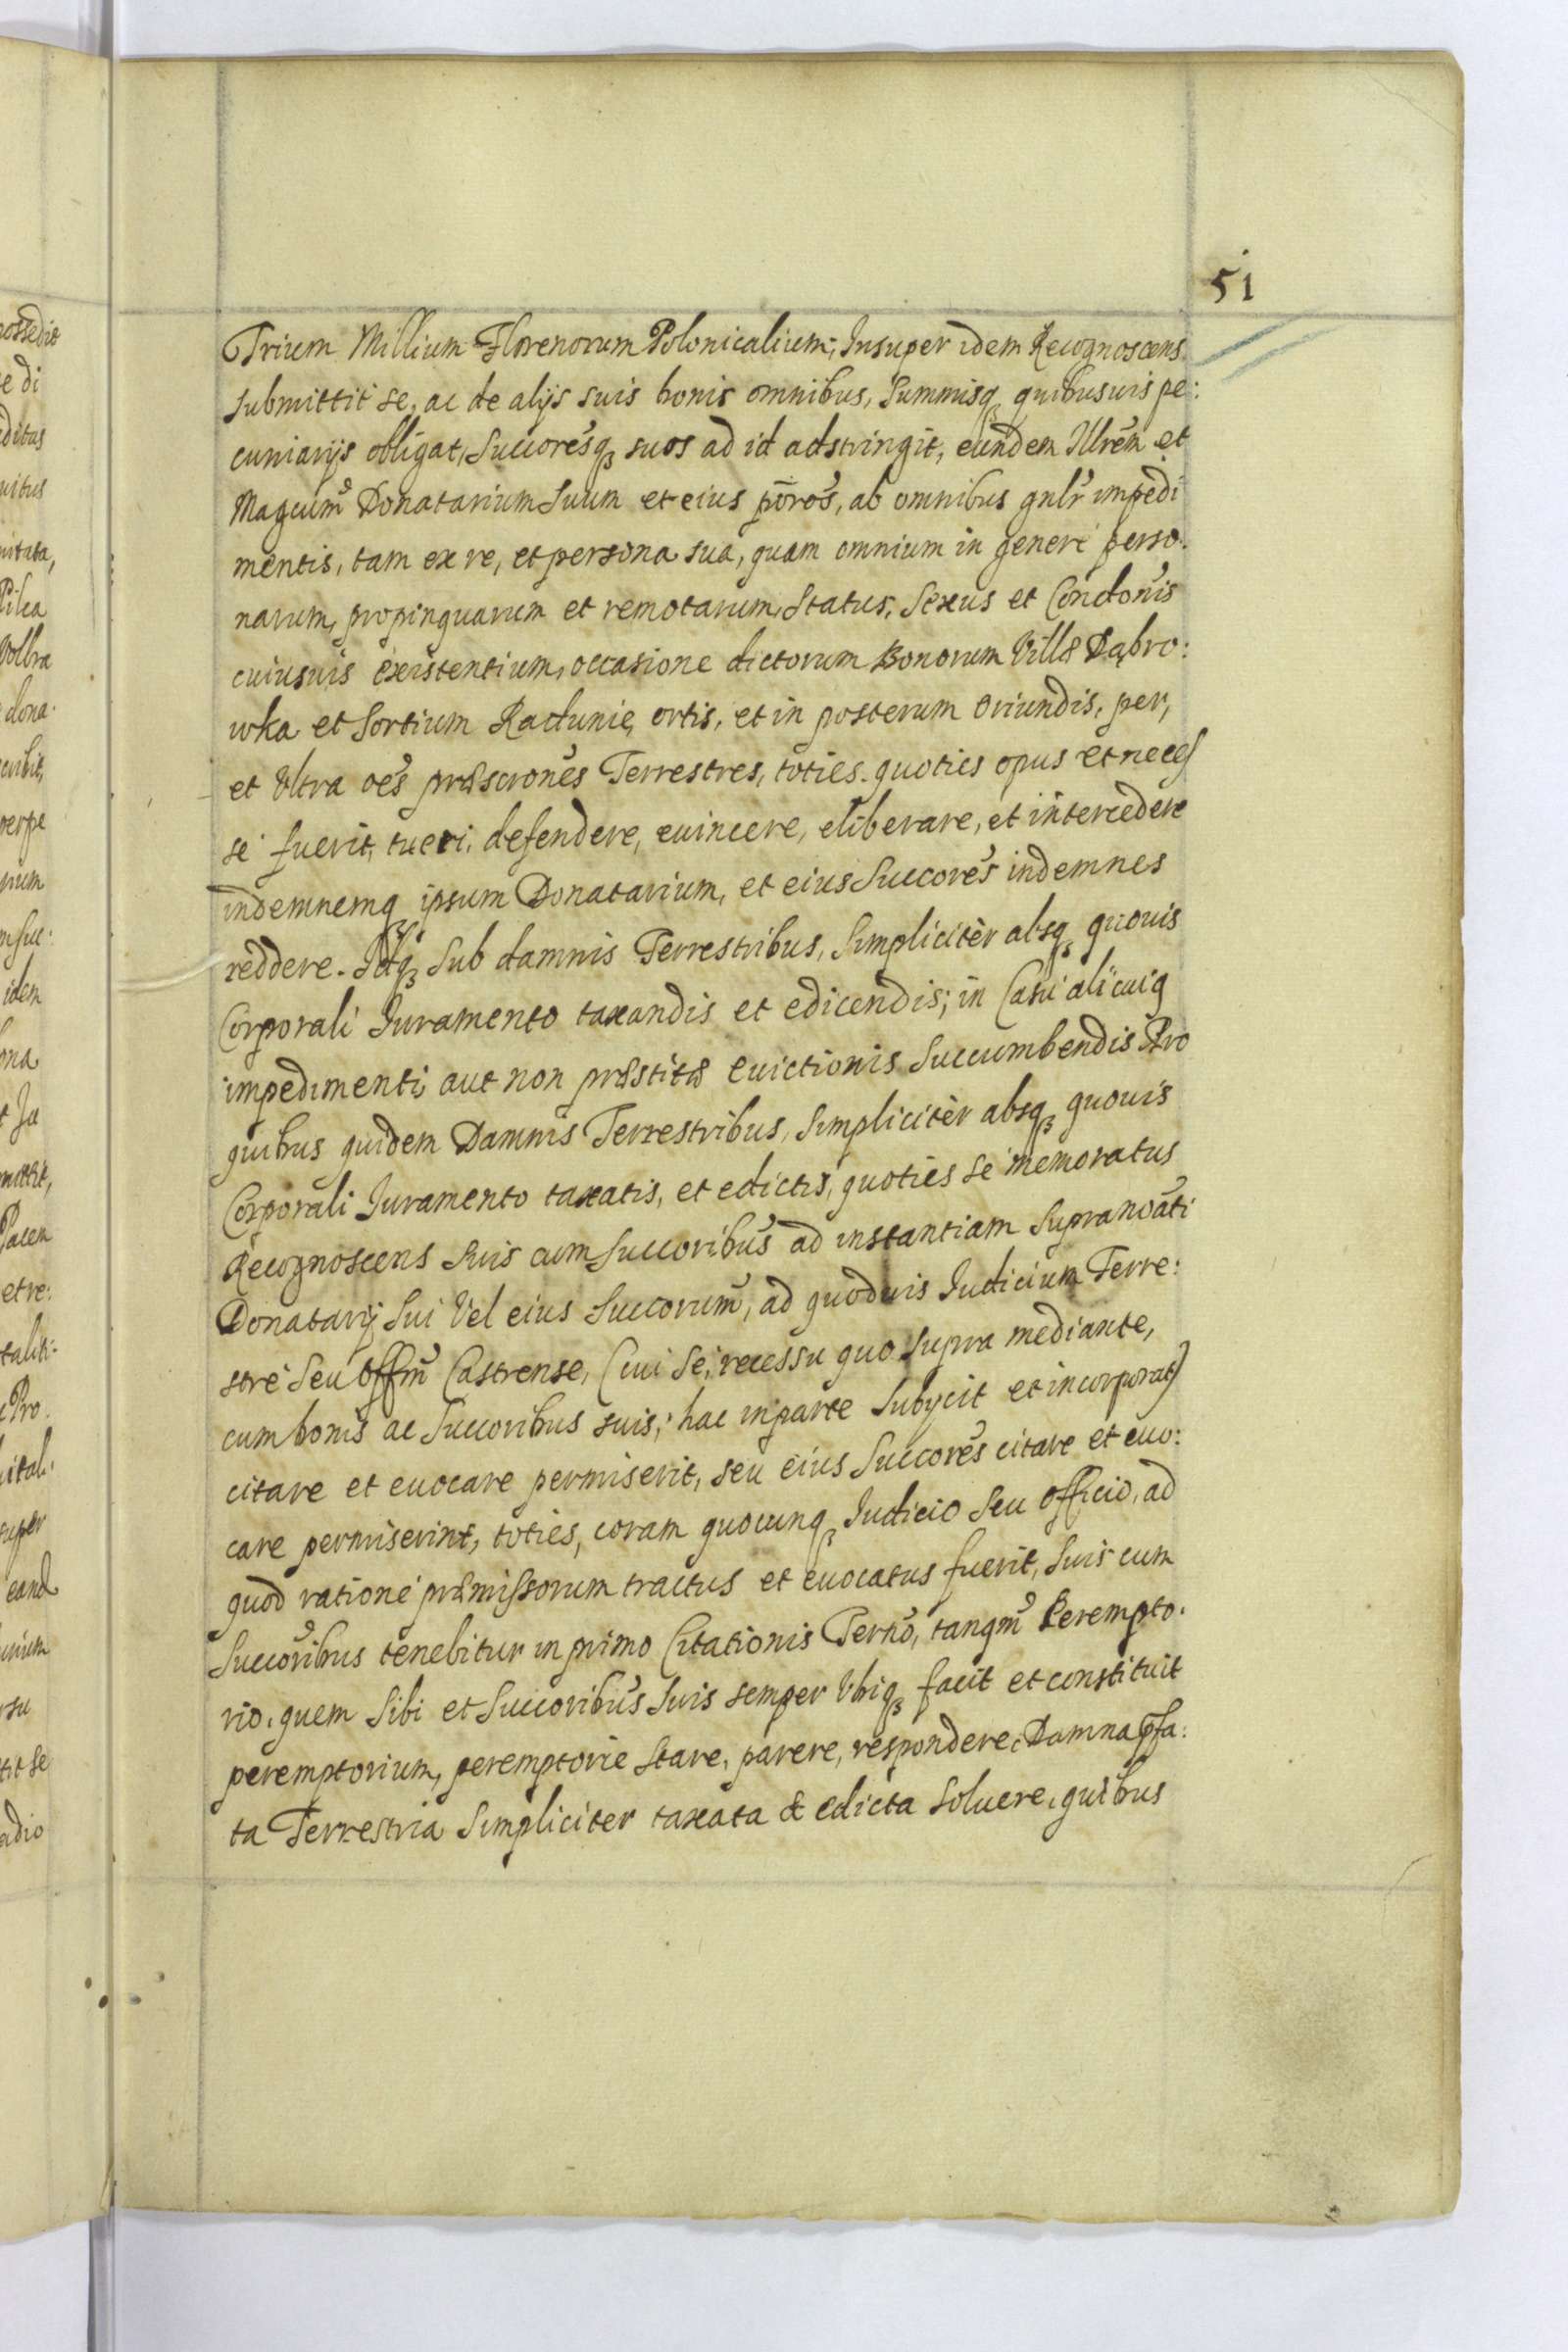 51
Trium Millium Florenorum Polonicalium; Insuper idem Recognoscens
submittit se, ac de alijs suis bonis omnibus, Summisqꝫ quibusuis pe:
cuniarijs obligat, Succoresqꝫ suos ad id adstringit, eundem Illrem et
Magcum Donatarium Suum et eius pōros, ab omnibus gnlr impedi
mentis, tam ex re, et persona sua, quam omnium in genere perso.
narum, propinquarum et remotarum, Status, Sexus et Condonis
cuiusuis existentium, occasione dictorum Bonorum Villæ Dąbro:
wka et Sortium Radunię, ortis, et in posterum Oriundis, per,
et Vltra oēs præscrones Terrestres, toties quoties opus et neces
se fuerit, tueri, defendere, euincere, eliberare, et intercedere
indemnemqꝫ ipsum Donatarium, et eius Succores indemnes
reddere. Idqꝫ Sub damnis Terrestribus, Simpliciter absqꝫ quouis
Corporali Iuramento taxandis et edicendis; in Casu alicuig
impedimenti, aut non præstitæ euictionis Succumbendis Pro
quibus quidem Damnis Terrestribus, Simpliciter absqꝫ quouis
Corporali Iuramento taxatis, et edictis, quoties se memoratus
Recognoscens Suis cum Succoribus ad instantiam Supranoāti
Donatarij Sui Vel eius Succorum, ad quoduis Iudicium Terre:
stre Seu Offm Castrense, (cui se, recessu quo Supra mediante,
cum bonis ac Succoribus suis, hac in parte Subijcit et incorporat)
citare et euocare permiserit, seu eius Succores citare et euo:
care permiserint, toties, coram quocunqꝫ Iudicio Seu Officio, ad
quod ratione præmissorum tractus et euocatus fuerit, Suis cum
Succoribus tenebitur in primo Citationis Termo, tanqm Perempto.
rio, quem Sibi et Succoribus Suis semper Vbiqꝫ facit et constituit
peremptorium, peremptorie Stare, parere, respondere, Damna pfa:
ta Terrestria Simpliciter taxata & edicta Soluere, quibus